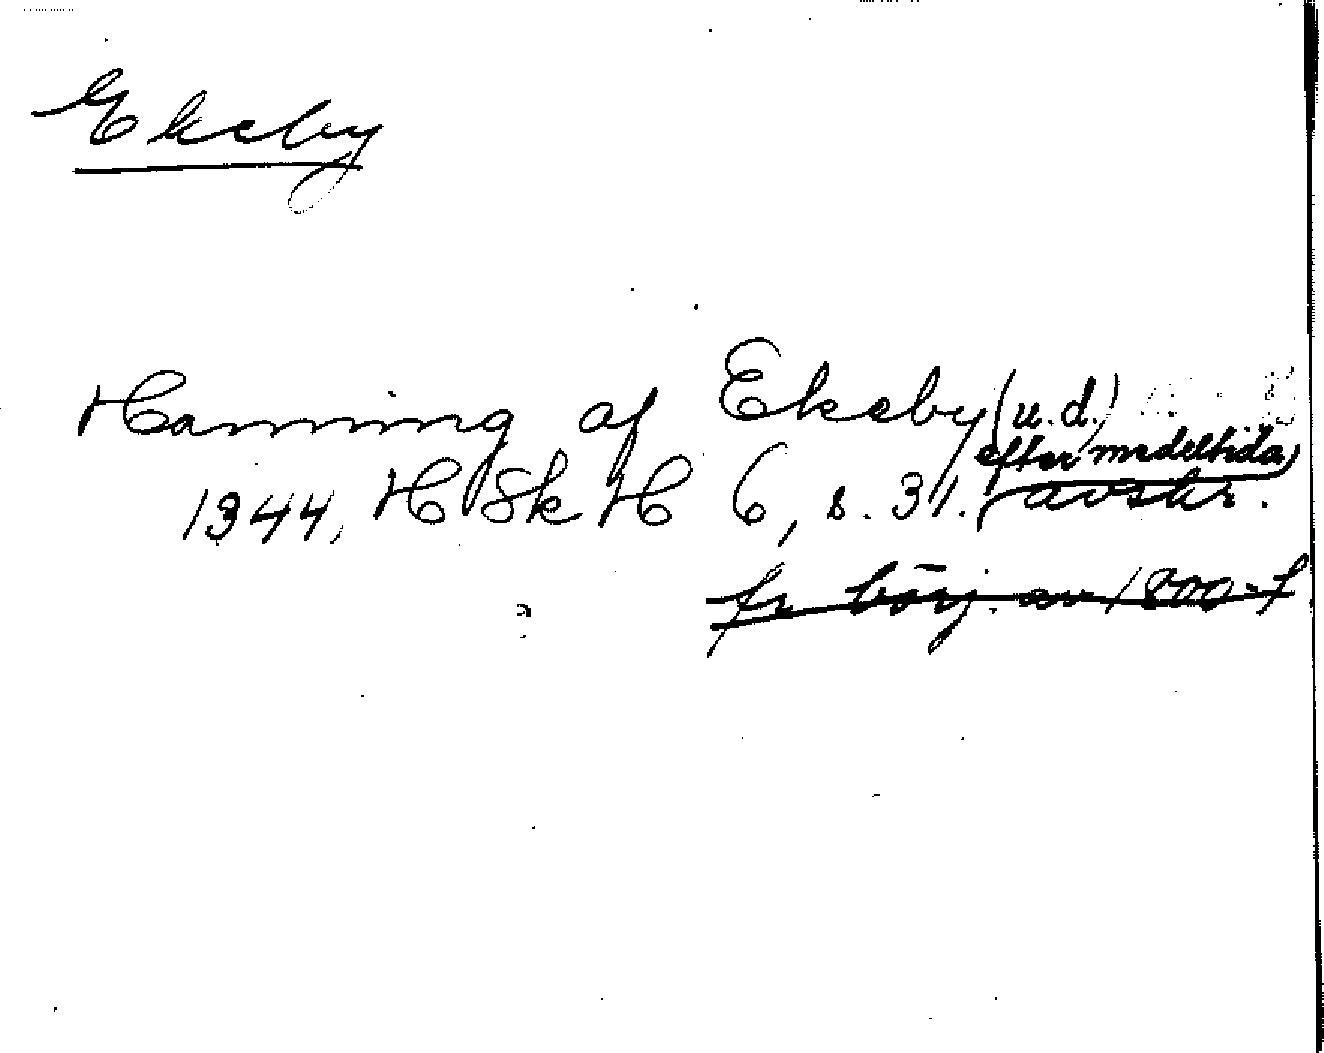 Ekeby
Hanning af Ekeby (u.d.)
efter medeltida
1344, HSkH 6, s. 31. avskr.
fr börj. av 1800-t.